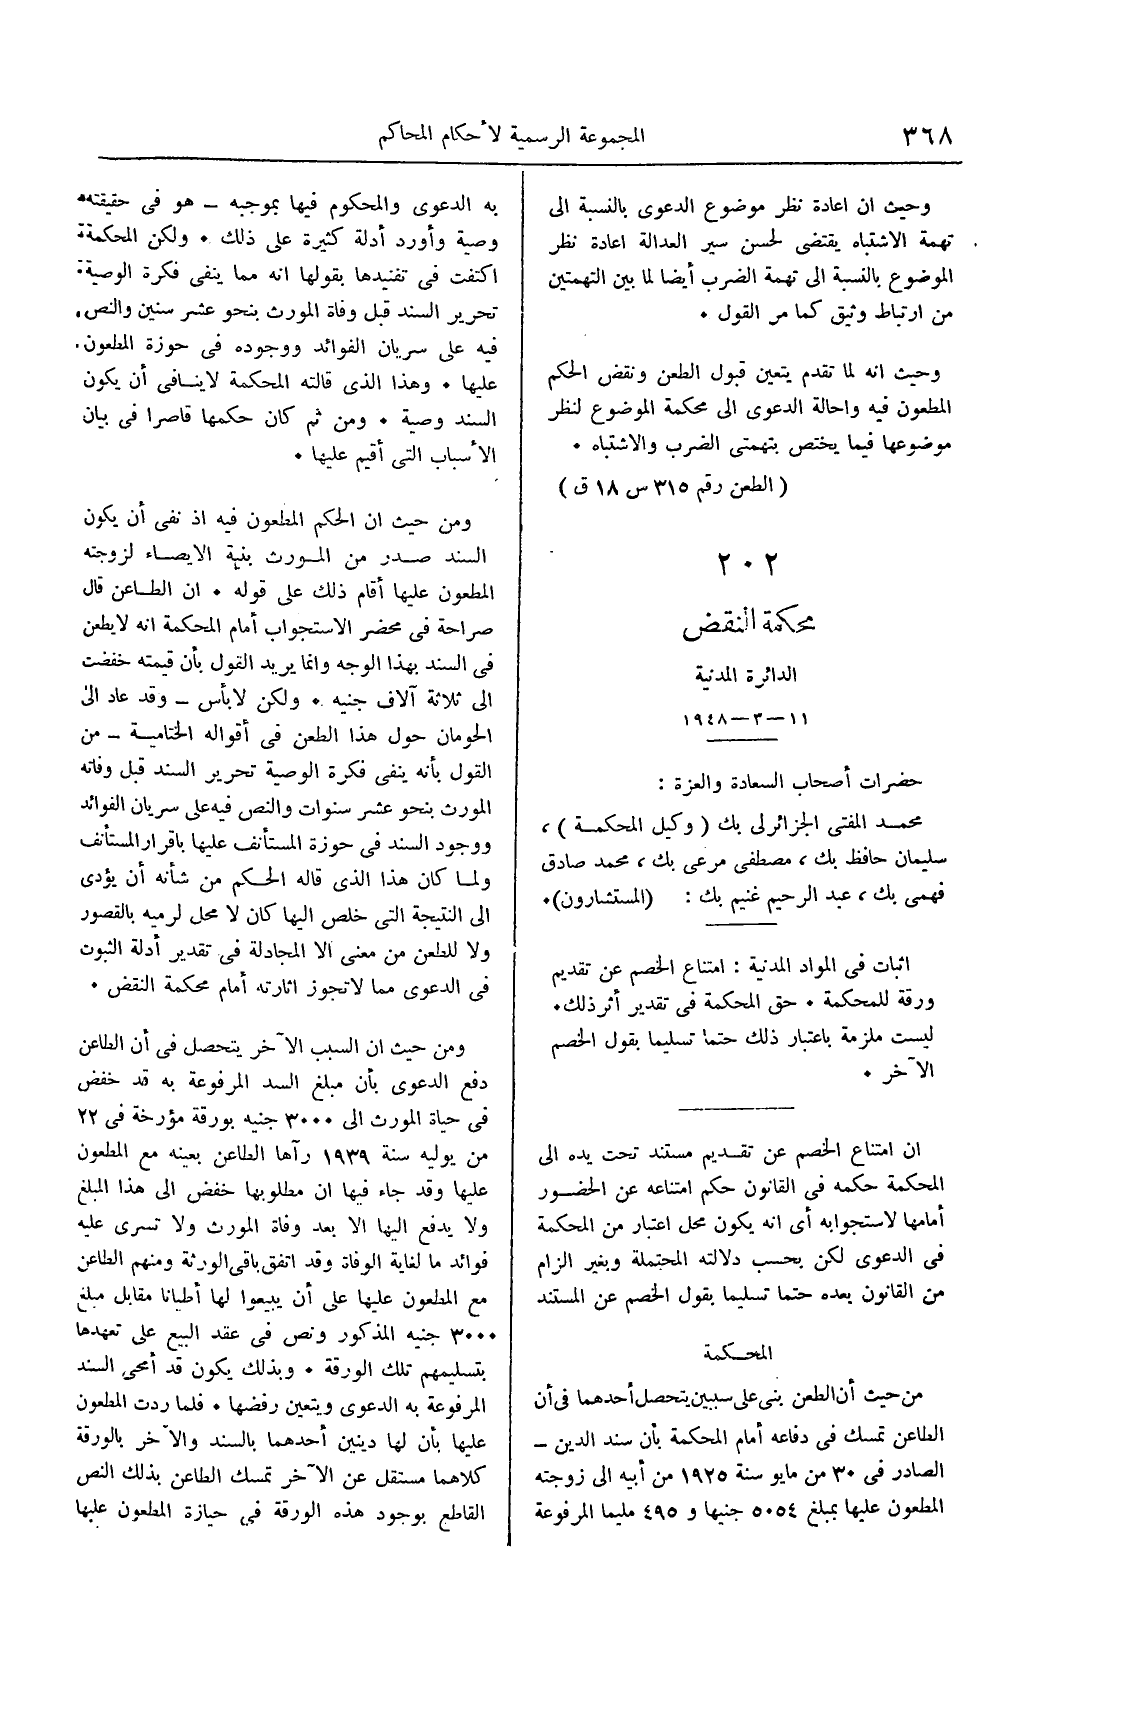 ٣٦٨
المجموعة الرسمية لأحكام المحاكم
وحيث ان اعادة نظر موضوع الدعوى بالنسبة الى
تهمة الاشتباه يقتضى لحسن سير العدالة اعادة نظر
الموضوع بالنسبة الى تهمة الضرب أيضا لما بين التهمتين
من ارتباط وثيق كما مر القول ٠
وحيث انه لما تقدم يتعين قبول الطعن ونقض الحكم
المطعون فيه واحالة الدعوى الى محكمة الموضوع لنظر
موضوعها فيما يختص بتهمتى الضرب والاشتباه ٠
( الطعن رقم ٣١٥ س ١٨ ق )
٢٠٢
محكمة النقض
الدائرة المدنية
١١-٣-١٩٤٨
حضرات أصحاب السعادة والعزة :
محمد المفتى الجزائرلى بك ( وكيل المحكمة ) ،
سليمان حافظ بك ، مصطفى مرعى بك ، محمد صادق
فهمى بك ، عبد الرحيم غنيم بك : (المستشارون)٠
اثبات فى المواد المدنية : امتناع الخصم عن تقديم
ورقة للمحكمة ٠ حق المحكمة فى تقدير أثر ذلك٠
ليست ملزمة باعتبار ذلك حتما تسليما بقول الخصم
الآخر ٠
ان امتناع الخصم عن تقديم مستند تحت يده الى
المحكمة حكمه فى القانون حكم امتناعه عن الحضور
أمامها لاستجوابه أى انه يكون محل اعتبار من المحكمة
فى الدعوى لكن بحسب دلالته المحتملة وبغير الزام
من القانون بعده حتما تسليما بقول الخصم عن المستند
المحكمة
من حيث أن الطعن بنى على سببين يتحصل أحدهما فى أن
الطاعن تمسك فى دفاعه أمام المحكمة بأن سند الدين –
الصادر فى ٣٠ من مايو سنة ١٩٢٥ من أبيه الى زوجته
المطعون عليها بمبلغ ٥٠٥٤ جنيها و ٤٩٥ مليما المرفوعة
به الدعوى والمحكوم فيها بموجبه – هو فى حقيقته
وصية وأورد أدلة كثيرة على ذلك ٠ ولكن المحكمة
اكتفت فى تفنيدها بقولها انه مما ينفى فكرة الوصية
تحرير السند قبل وفاة المورث بنحو عشر سنين والنص
فيه على سريان الفوائد ووجوده فى حوزة المطعون
عليها ٠ وهذا الذى قالته المحكمة لاينافى أن يكون
السند وصية ٠ ومن ثم كان حكمها قاصرا فى بيان
الأسباب التى أقيم عليها ٠
ومن حيث ان الحكم المطعون فيه اذ نفى أن يكون
السند صدر من المورث بنية الايصاء لزوجته
المطعون عليها أقام ذلك على قوله ٠ ان الطاعن قال
صراحة فى محضر الاستجواب أمام المحكمة انه لايطعن
فى السند بهذا الوجه وانما يريد القول بأن قيمته خفضت
الى ثلاثة آلاف جنيه ٠ ولكن لابأس – وقد عاد الى
الحومان حول هذا الطعن فى أقواله الختامية – من
القول بأنه ينفى فكرة الوصية تحرير السند قبل وفاته
المورث بنحو عشر سنوات والنص فيه على سريان الفوائد
ووجود السند فى حوزة المستأنف عليها باقرار المستأنف
ولما كان هذا الذى قاله الحكم من شأنه أن يؤدى
الى النتيجة التى خلص اليها كان لا محل لرميه بالقصور
ولا للطعن من معنى الا المجادلة فى تقدير أدلة الثبوت
فى الدعوى مما لاتجوز اثارته أمام محكمة النقض ٠
ومن حيث ان السبب الآخر يتحصل فى أن الطاعن
دفع الدعوى بأن مبلغ السد المرفوعة به قد خفض
فى حياة المورث الى ٣٠٠٠ جنيه بورقة مؤرخة فى ٢٢
من يوليه سنة ١٩٣٩ رآها الطاعن بعينه مع المطعون
عليها وقد جاء فيها ان مطلوبها خفض الى هذا المبلغ
ولا يدفع اليها الا بعد وفاة المورث ولا تسرى عليه
فوائد ما لغاية الوفاة وقد اتفق باقى الورثة ومنهم الطاعن
مع المطعون عليها على أن يبيعوا لها أطيانا مقابل مبلغ
٣٠٠٠ جنيه المذكور ونص فى عقد البيع على تعهدها
بتسليمهم تلك الورقة ٠ وبذلك يكون قد أمحى السند
المرفوعة به الدعوى ويتعين رفضها ٠ فلما ردت المطعون
عليها بأن لها دينين أحدهما بالسند والآخر بالورقة
كلاهما مستقل عن الآخر تمسك الطاعن بذلك النص
القاطع بوجود هذه الورقة فى حيازة المطعون عليها